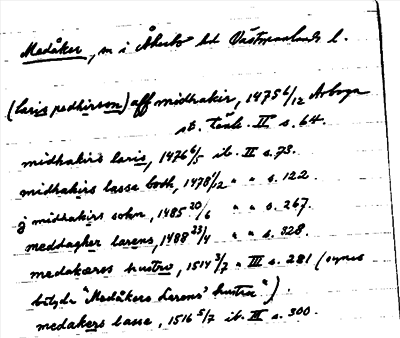 Medåker, sn i Åkerbo hd Västmanlands l.
(laris pedhirson) aff midhakir, 1475 6/12 Arboga
st. Tänk. II s. 64.
midhakirs laris, 1476 6/5 ib. II s. 73.
midhakirs lasse bodh, 1478 1/12 " " s. 122
j midhakirs sokn, 1485 20/6 " " s. 267.
meddagher larens, 1488 23/4 " " s. 328.
medakæres hustro, 1514 3/7 " III s. 281 (synes
betyda "Medåkers Larens' hustru").
medakers lasse, 1516 5/7 ib. III s. 300.